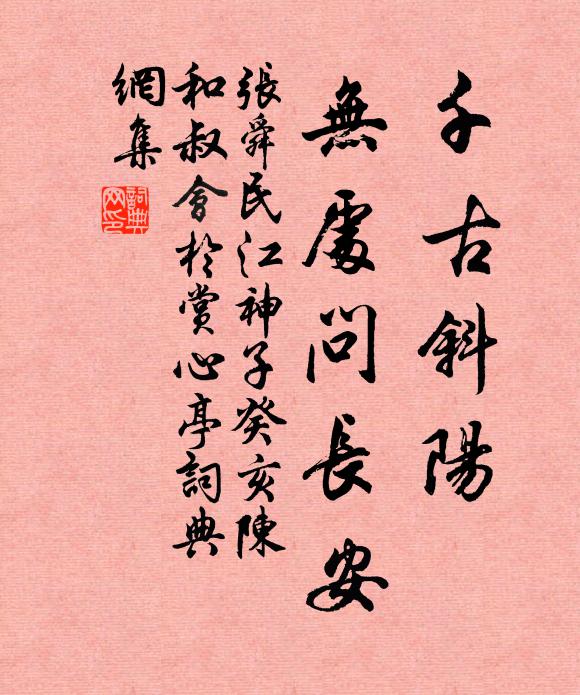 千古斜陽
無處問長安
張舜民江神子癸亥陳
和叔會於賞心亭詞典
網集
詞典網印